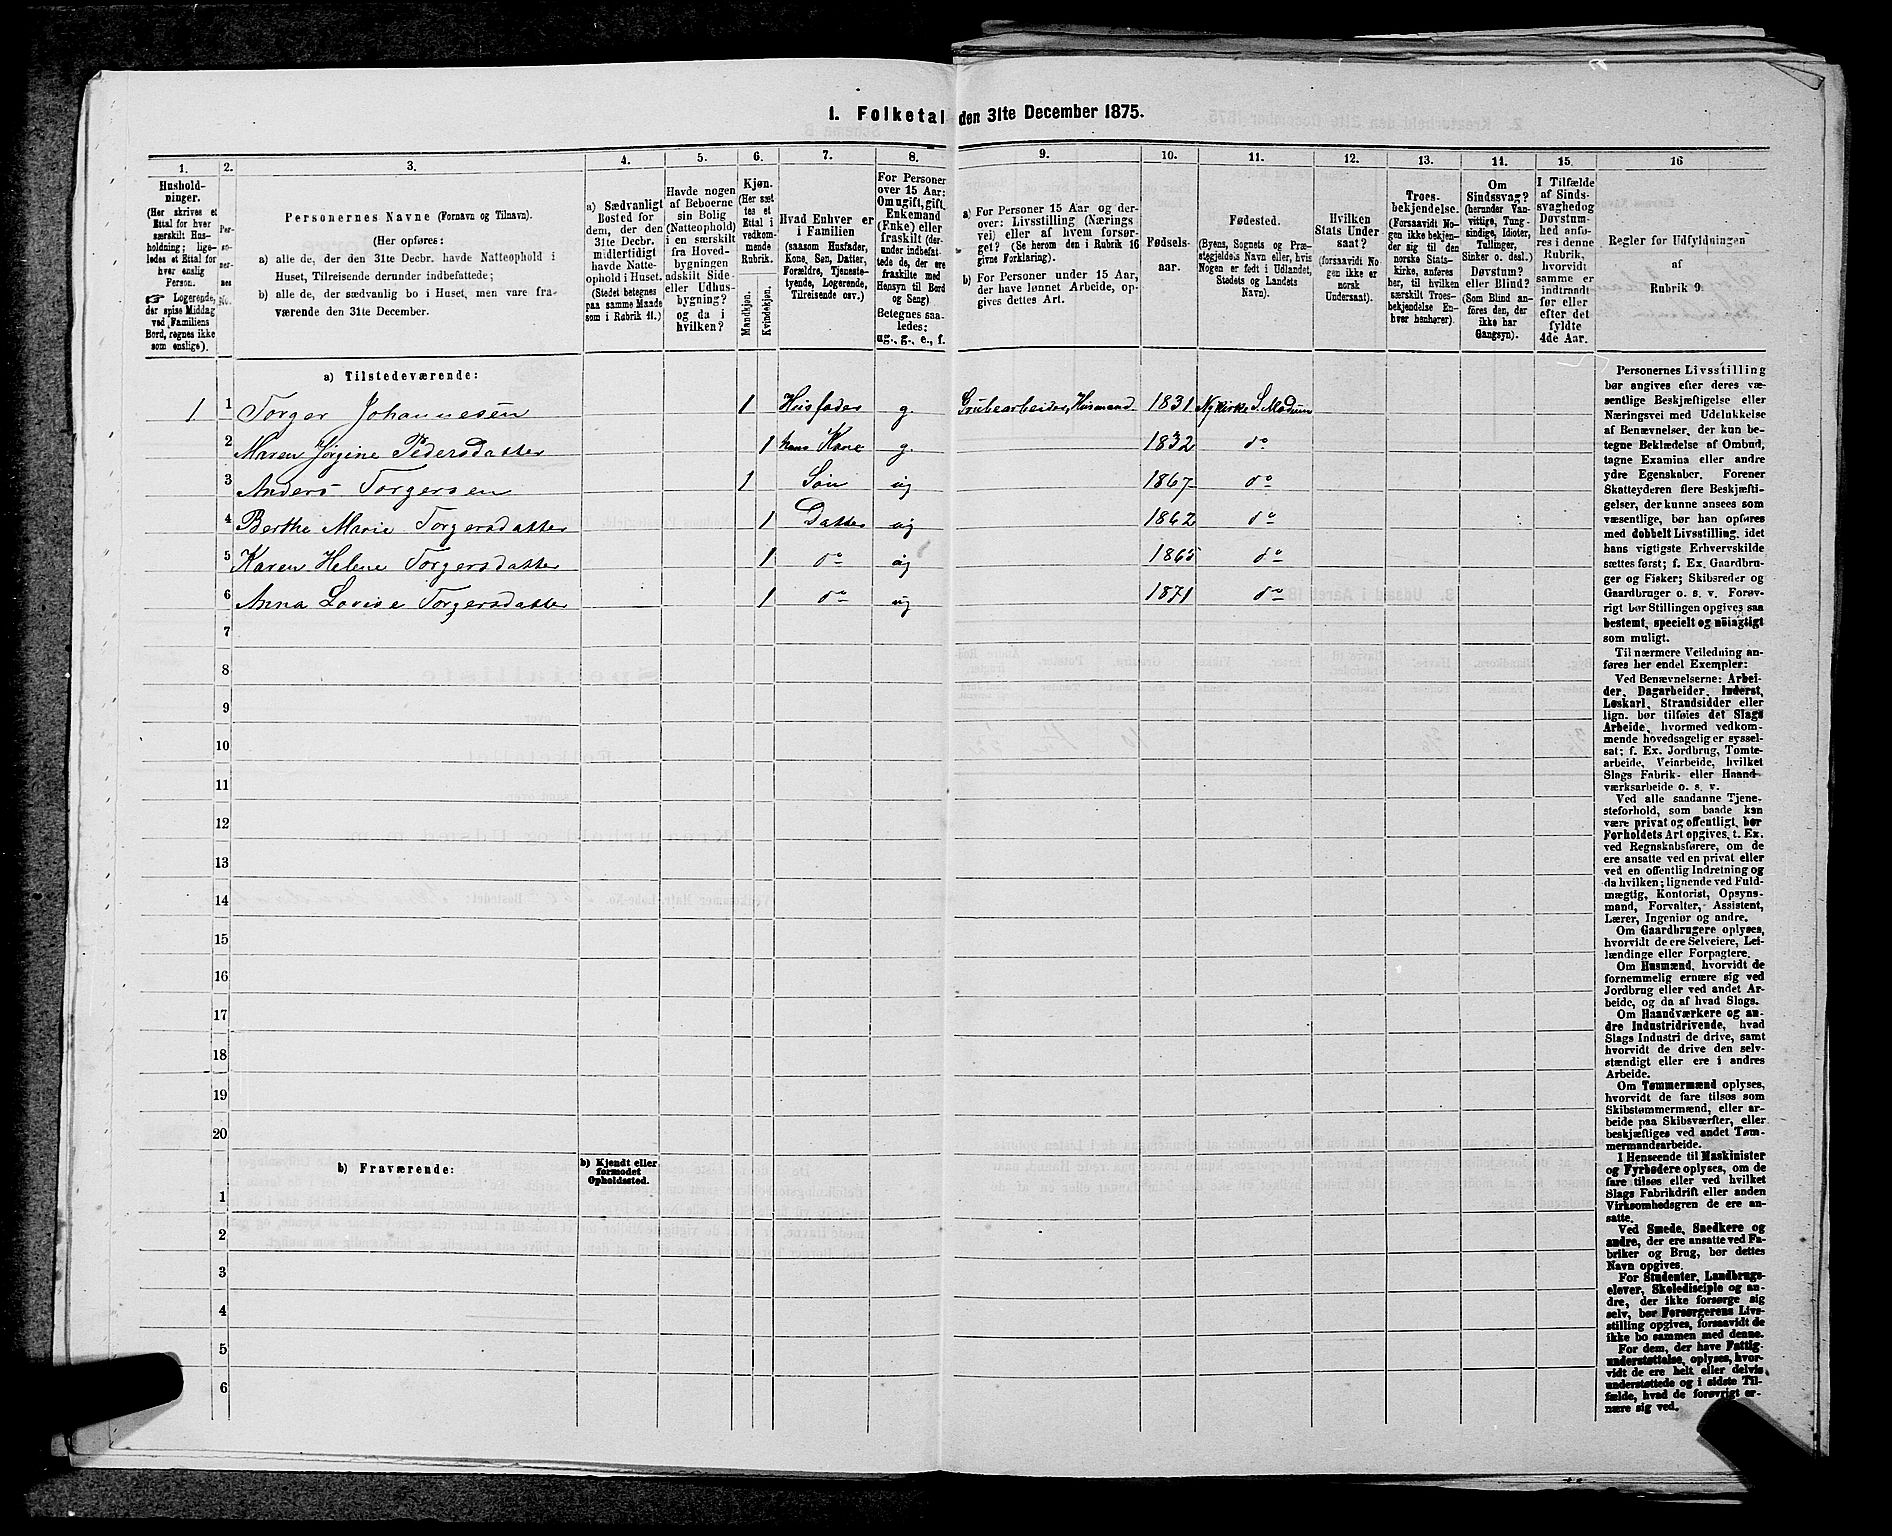 1. Folketal den 31te December 1875.
1. 2. 3. 4. 5. 6. 7. 8. 9. 10. 11. 12. 13. 14. 15. 16
Hushold-
ninger.
(Her skrives et
Ettal for hver
særskilt Hus-
holdning; lige-
ledes et Ettal for
hver enslig
Person.
☞ Logerende,
der spise Middag
ved Familiens
Bord, regnes ikke
som enslige).
Per-
so-
ner-
nes
No.
Personernes Navne (Fornavn og Tilnavn).
(Her opføres:
a) alle de, der den 31te Decbr. havde Natteophold i
Huset, Tilreisende derunder indbefattede;
b) alle de, der sædvanlig bo i Huset, men vare fra-
værende den 31te December.
a) Sædvanligt
Bosted for
dem, der den
31te Decbr.
midlertidigt
havde Natte-
ophold i Huset.
(Stedet betegnes
paa samme Maade
som i Rubrik 11.)
Havde nogen
af Beboerne
sin Bolig
(Natteophold)
i en særskilt
fra Hoved-
bygningen
adskilt Side-
eller Udhus-
bygning?
og da i
hvilken?
Kjøn.
(Her sæt
tes et
Ettal i
vedkom-
mende
Rubrik.
Mandkjøn.
Kvindekjøn.
Hvad Enhver er
i Familien
(saasom Husfader,
Kone, Søn, Datter,
Forældre, Tjeneste-
tyende, Logerende,
Tilreisende osv.)
For Personer
over 15 Aar:
Om ugift, gift,
Enkemand
(Enke) eller
fraskilt (der-
under indbefat-
tede de, der ere
fraskilte med
Hensyn til Bord
og Seng)
Betegnes saa-
ledes:
ug., g., e., f.
a) For Personer 15 Aar og der-
over: Livsstilling (Nærings-
vei) eller af hvem forsør-
get? (Se herom den i Rubrik 16
givne Forklaring).
b) For Personer under 15 Aar,
der have lønnet Arbeide, op-
gives dettes Art.
Fødsels-
aar.
Fødested.
(Byens, Sognets og Præ-
stegjeldets Navn, eller, hvis
Nogen er født i Udlandet,
Stedets og Landets
Navn).
Hvilken
Stats Under
saat?
(forsaavidt No
gen ikke er
norsk
Undersaat).
Troes-
bekjendelse.
(Forsaavidt No-
gen ikke bekjen-
der sig til den
norske Stats-
kirke, anføres
her, til hvilken
særskilt Troes-
bekjendelse En-
hver henhører).
Om
Sindssvag?
(herunder Van-
vittige, Tung-
sindige, Idioter,
Tullinger,
Sinker o. desl.)
Døvstum?
eller Blind?
(Som Blind an-
føres den, der
ikke har
Gangsyn).
I Tilfælde
af Sinds-
svaghed og
Døvstum-
hed anfø-
res i denne
Rubrik,
hvorvidt
samme er
indtraadt
før eller
efter det
fyldte
4de Aar.
Regler for Udfyldningen
af
Rubrik 9.
a) Tilstedeværende:
1 1 Torger Johannesen 1 Husfader g. Grubearbeider, Husmand 1831 Nykirke S. Modum
2 Maren Jørgine Pedersdatter 1 hans Kone g. 1832 do
3 Anders Torgersen 1 Søn ug 1867 do
4 Berthe Marie Torgersdatter 1 Datter ug 1862 do
5 Karen Helene Torgersdatter 1 do ug 1865 do
6 Anna Lovise Torgersdatter 1 do ug 1871 do
7
8
9
10
11
12
13
14
15
16
17
18
19
20
b) Fraværende:
b) Kjendt eller
formodet
Opholdssted.
1
2
3
4
5
6
Personernes Livsstilling
bør angives efter deres væ-
sentlige Beskjæftigelse eller
Næringsvei med Udelukkelse
af Benævnelser, der kun be-
tegne Beklædelse af Ombud,
tagne Examina eller andre
ydre Egenskaber. Forener
Skatteyderen flere Beskjæfti-
gelser, der kunne ansees som
væsentlige, bør han opføres
med dobbelt Livsstilling, idet
hans vigtigste Erhvervskilde
sættes først; f. Ex. Gaardbru-
ger og Fisker; Skibsreder og
Gaardbruger o. s. v. Forøv-
rigt bør Stillingen opgives saa
bestemt, specielt og nøiagtigt
som muligt.
Til nærmere Veiledning an-
føres her endel Exempler:
Ved Benævnelserne: Arbei-
der, Dagarbeider, Inderst,
Løskarl, Strandsidder eller
lign. bør tilføies det Slags
Arbeide, hvormed vedkom-
mende hovedsagelig er syssel-
sat; f. Ex. Jordbrug, Tomte-
arbeide, Veiarbeide, hvilket
Slags Fabrik- eller Haand-
værksarbeide o. s. v.
Ved alle saadanne Tjene-
steforhold, som baade kan
være privat og offentligt, bør
Forholdets Art opgives, t. Ex.
ved Regnskabsførere, om de
ere ansatte ved en privat eller
ved en offentlig Indretning og
da hvilken; lignende ved Fuld-
mægtig, Kontorist, Opsyns-
mand, Forvalter, Assistent,
Lærer, Ingeniør og andre.
Om Gaardbrugere oplyses,
hvorvidt de ere Selveiere, Lei-
lændinge eller Forpagtere.
Om Husmænd, hvorvidt de
fornemmelig ernære sig ved
Jordbrug eller ved andet Ar-
beide, og da af hvad Slags.
Om Haandværkere og an-
dre Industridrivende, hvad
Slags Industri de drive, samt
hvorvidt de drive den selv-
stændigt eller ere i andres
Arbeide.
Om Tømmermænd oplyses,
hvorvidt de fare tilsøs som
Skibstømmermænd, eller ar-
beide paa Skibsværfter, eller
beskjæftiges ved andet Tøm-
mermandsarbeide.
I Henseende til Maskinister
og Fyrbødere oplyses, om de
fare tilsøs eller ved hvilket
Slags Fabrikdrift eller anden
Virksomhedsgren de ere an-
satte.
Ved Smede, Snedkere og
andre, der ere ansatte ved Fa-
briker og Brug, bør dettes
Navn opgives.
For Studenter, Landbrugs-
elever, Skoledisciple og an-
dre, der ikke forsørge sig
selv, bør Forsørgerens Livs-
stilling opgives, forsaavidt de
ikke bo sammen med denne.
For dem, der have Fattig-
understøttelse, oplyses, hvor-
vidt de ere helt eller delvis
understøttede og i sidste Til-
fælde, hvad de forøvrigt er-
nære sig ved.